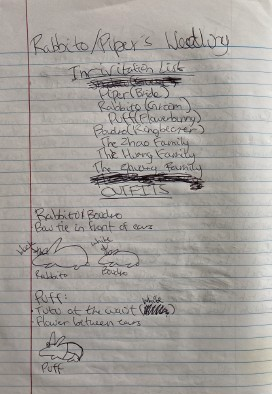 Rabbito/Piper's Wedding
Invitation List
Piper(Bride)
Rabbito(Groom)
Puff(Flowerbunny)
Bondro(Ringbearer)
The Zhao Family
The Huang Family
The Family
OUTFITS
Rabbito/Bondro
Bow tie in front of ears
white
Rabbito Bondro
Puff:
• Tutu at the waist (white)
• Flower between ears
Puff